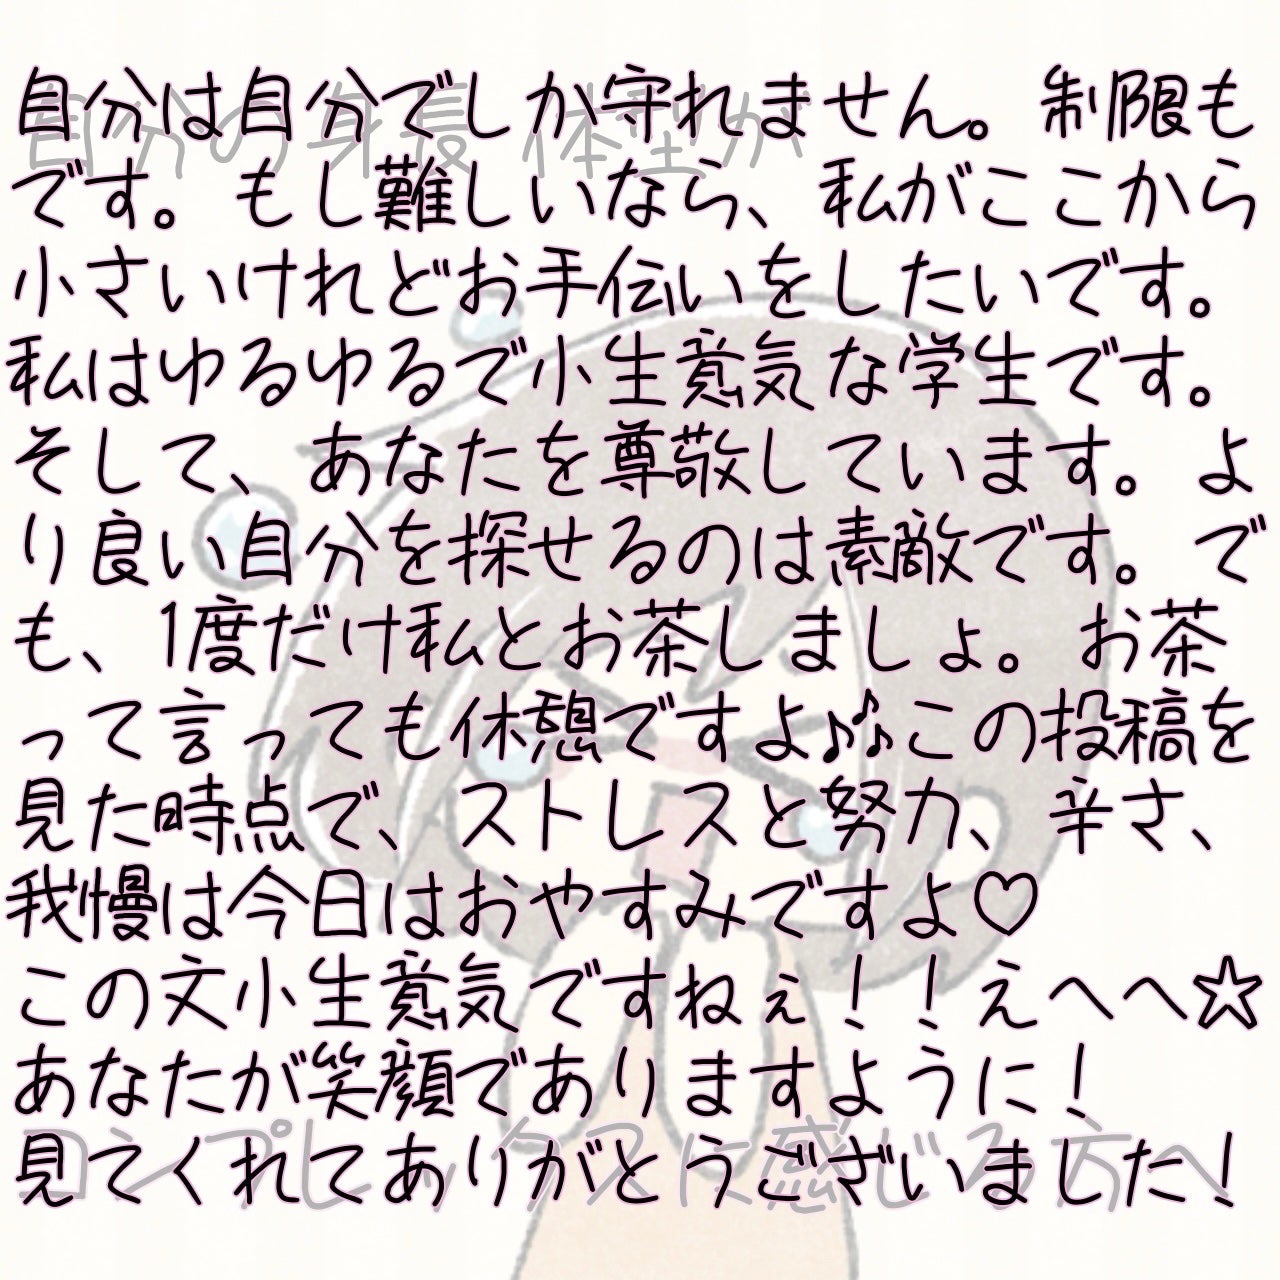 自分は自分でしか守れません。制限も
です。もし難しいなら、私がここから
小さいけれどお手伝いをしたいです。
私はゆるゆるで小生意気な学生です。
そして、あなたを尊敬しています。よ
り良い自分を探せるのは素敵です。で
も、1度だけ私とお茶しましょ。お茶
って言っても休憩ですよ♪♪この投稿を
見た時点で、ストレスと努力、辛さ、
我慢は今日はおやすみですよ♡
この文小生意気ですねぇ！！えへへ☆
あなたが笑顔でありますように！
見てくれてありがとうございました！
自分の身長 体型が
コンプレックスに感じる方へ